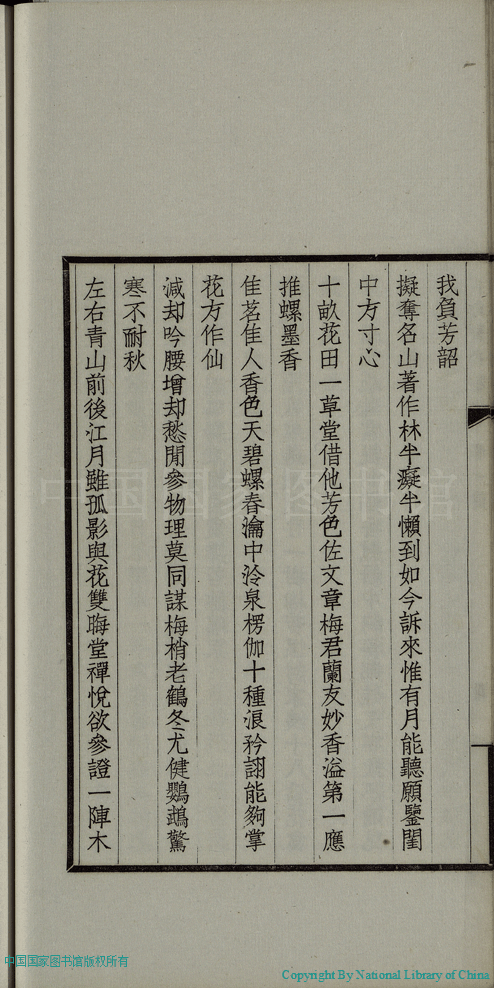 我負芳韶
擬奪名山著作林半癡半懶到如今訴來惟有月能聽願鑒閨
中方寸心
十畝花田一草堂借他芳色佐文章梅君蘭友妙香溢第一應
推螺墨香
佳茗佳人香色天碧螺春瀹中泠泉楞伽十種浪矜詡能夠掌
花方作仙
減却吟腰增却愁閒參物理莫同謀梅梢老鶴冬尤健鸚鵡驚
寒不耐秋
左右青山前後江月雖孤影與花雙晦堂禪悅欲參證一陣木
中国国家图书馆
中国国家图书馆版权所有
Copyright By National Library of China